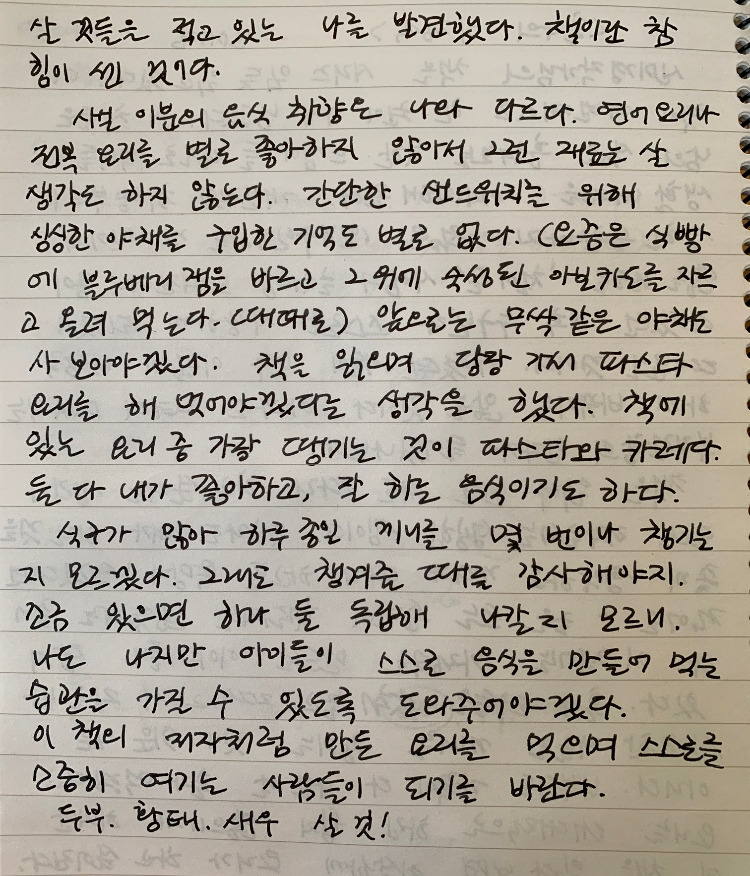 살 것들은 적고 있는 나를 발견했다. 책이란 참
힘이 센 것이다.
사실 이분의 음식 취향은 나와 다르다. 연어 요리나
전복 요리를 별로 좋아하지 않아서 그런 재료는 살
생각도 하지 않는다. 간단한 샌드위치를 위해
싱싱한 야채를 구입한 기억도 별로 없다. (요즘은 식빵
에 블루베리 잼을 바르고 그 위에 숙성된 아보카도를 자르
고 올려 먹는다. (때때로) 앞으로는 무싹 같은 야채도
사 보아야겠다. 책을 읽으며 당장 가지 파스타
요리를 해 먹어야겠다는 생각을 했다. 책에
있는 요리 중 가장 땡기는 것이 파스타와 카레다.
둘 다 내가 좋아하고, 잘 하는 음식이기도 하다.
식구가 많아 하루 종일 끼니를 몇 번이나 챙기는
지 모르겠다. 그래도 챙겨줄 때를 감사해야지.
조금 있으면 하나 둘 독립해 나갈지 모르니.
나도 나지만 아이들이 스스로 음식을 만들어 먹는
습관을 가질 수 있도록 도와주어야겠다.
이 책의 저자처럼 만든 요리를 먹으며 스스로를
소중히 여기는 사람들이 되기를 바란다.
두부. 황태. 새우 살 것!